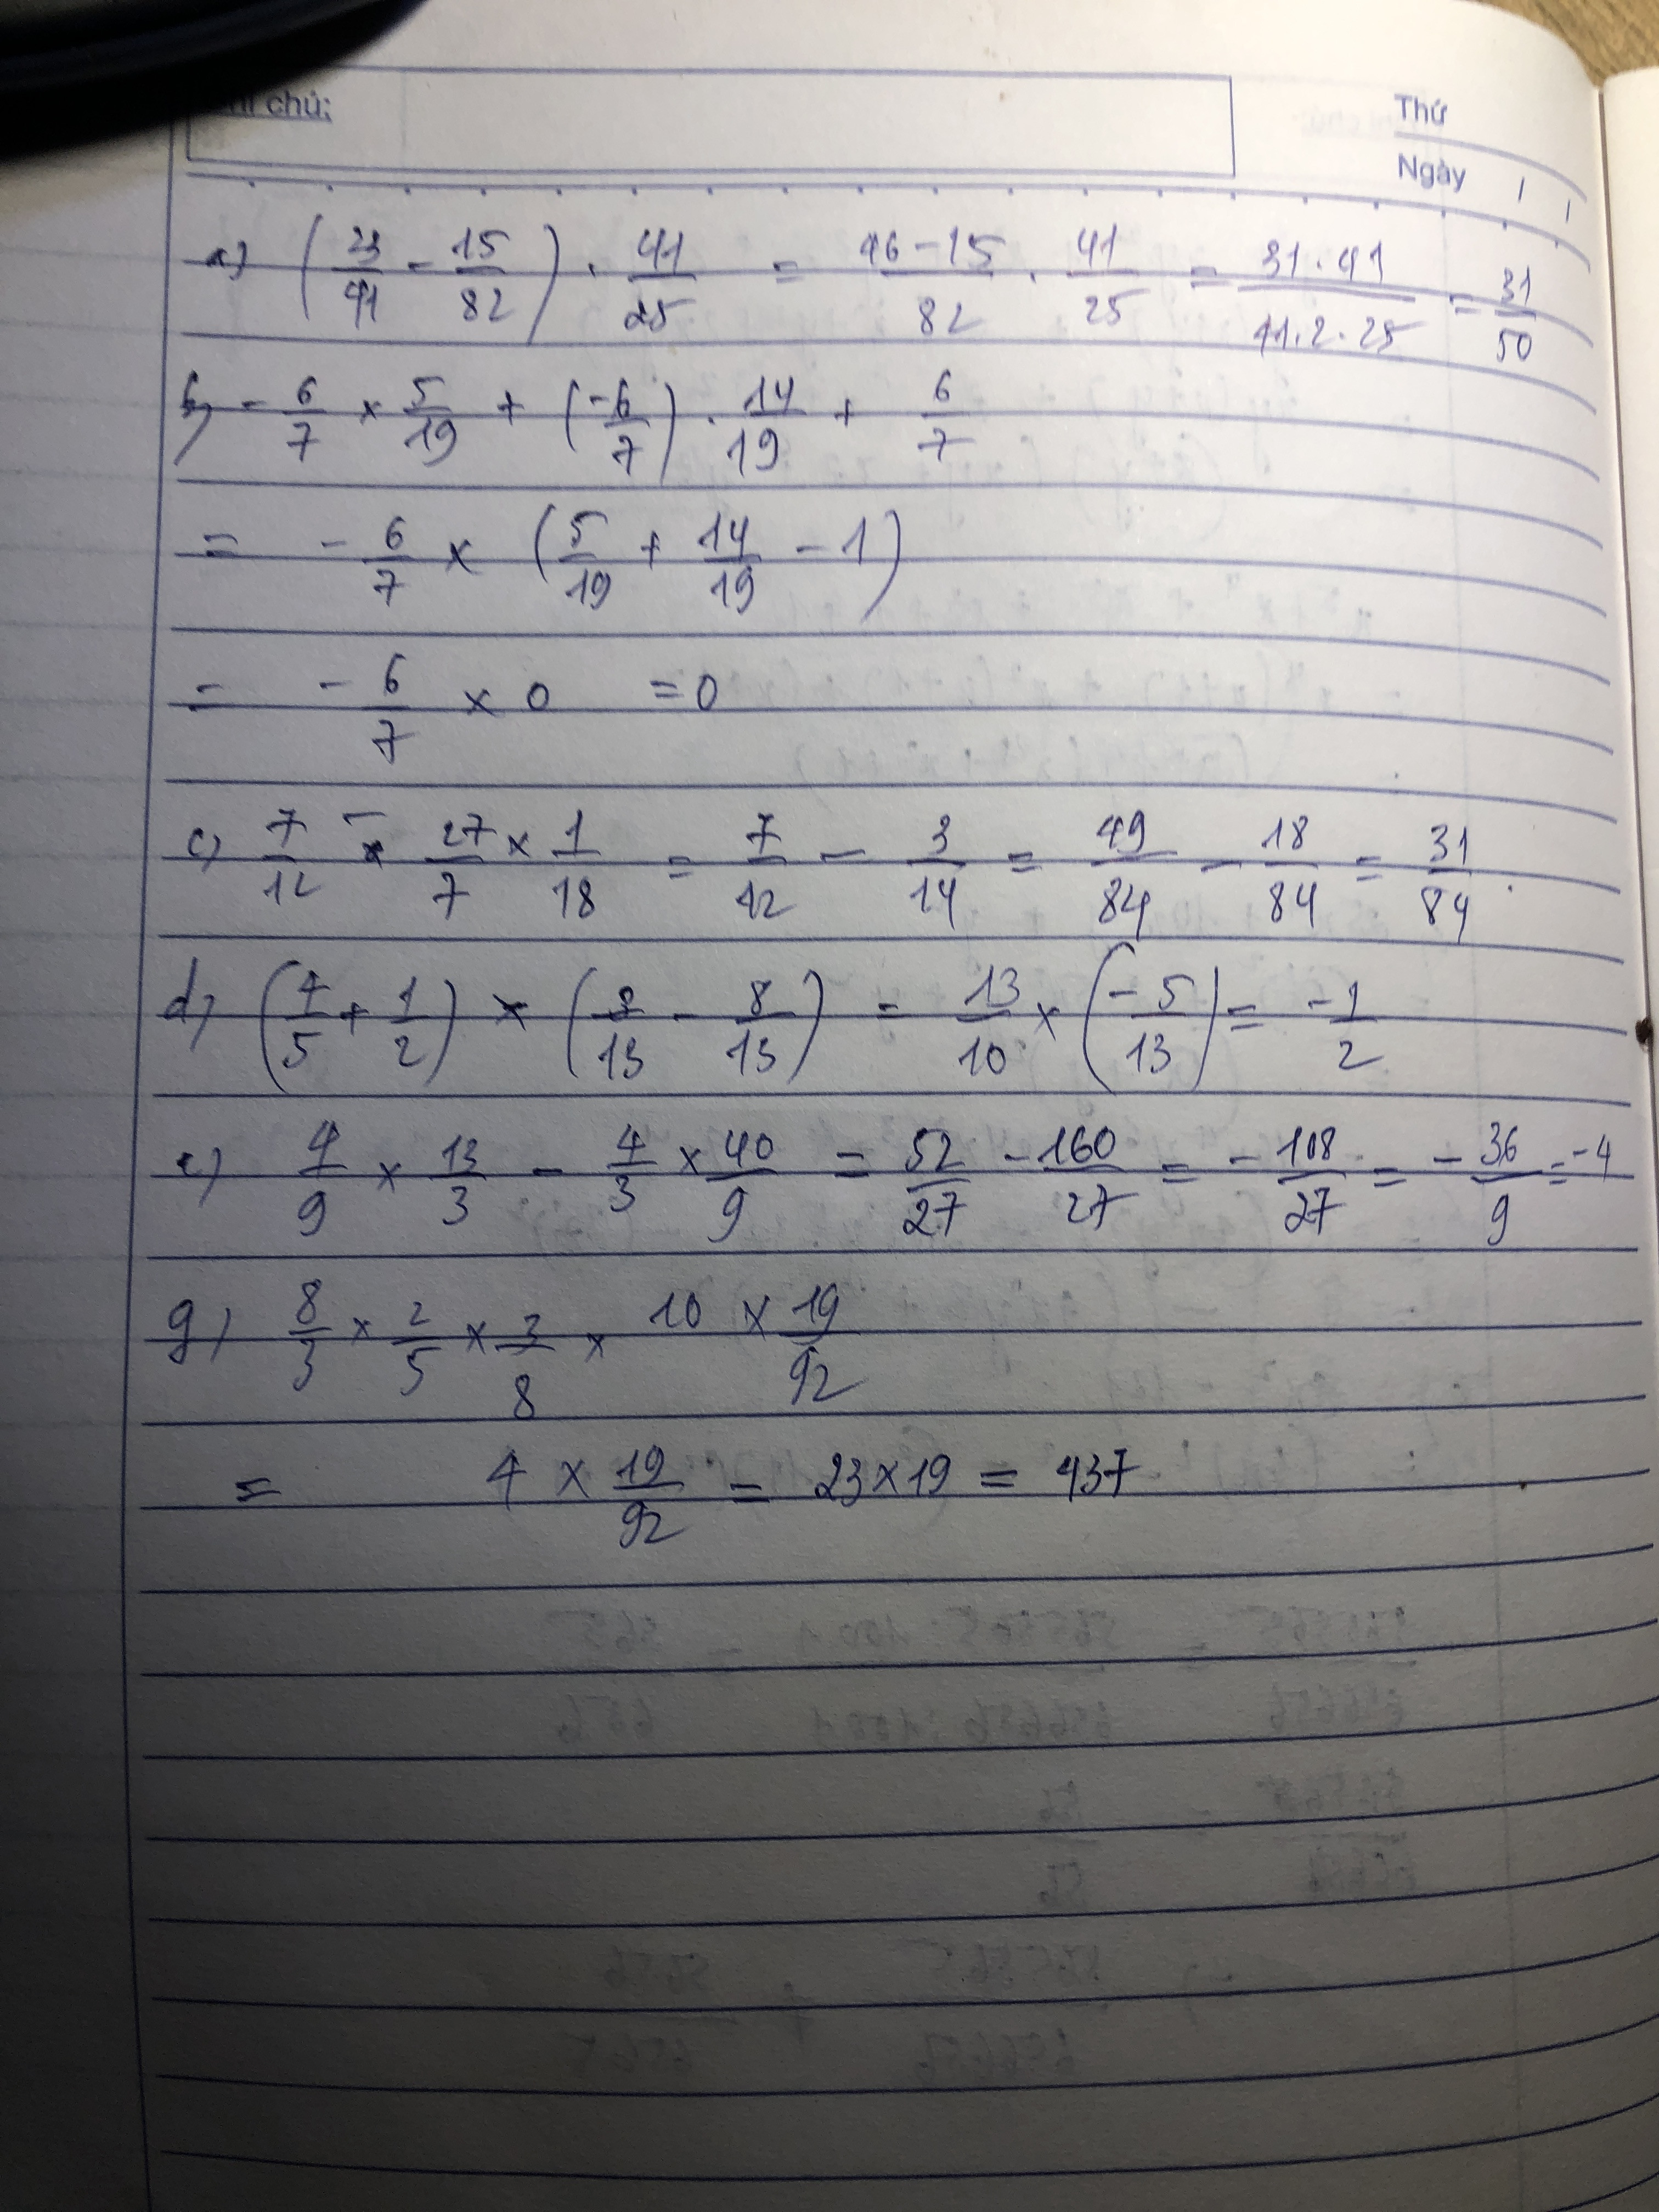 chú:
Thứ
Ngày / /
a) (23/41 - 15/82) . 41/25 = 46-15/82 . 41/25 = 31.41/41.2.25 = 31/50
b) - 6/7 × 5/19 + (-6/7) . 14/19 + 6/7
= - 6/7 × (5/19 + 14/19 - 1)
= - 6/7 × 0 = 0
c) 7/12 - 27/7 × 1/18 = 7/12 - 3/14 = 49/84 - 18/84 = 31/84 .
d) (4/5 + 1/2) × (3/13 - 8/13) = 13/10 × (-5/13) = -1/2
e) 4/9 × 13/3 - 4/3 × 40/9 = 52/27 - 160/27 = - 108/27 = - 36/9 = -4
g) 8/3 × 2/5 × 3/8 × 10 × 19/92
= 4 × 19/92 = 23×19 = 437